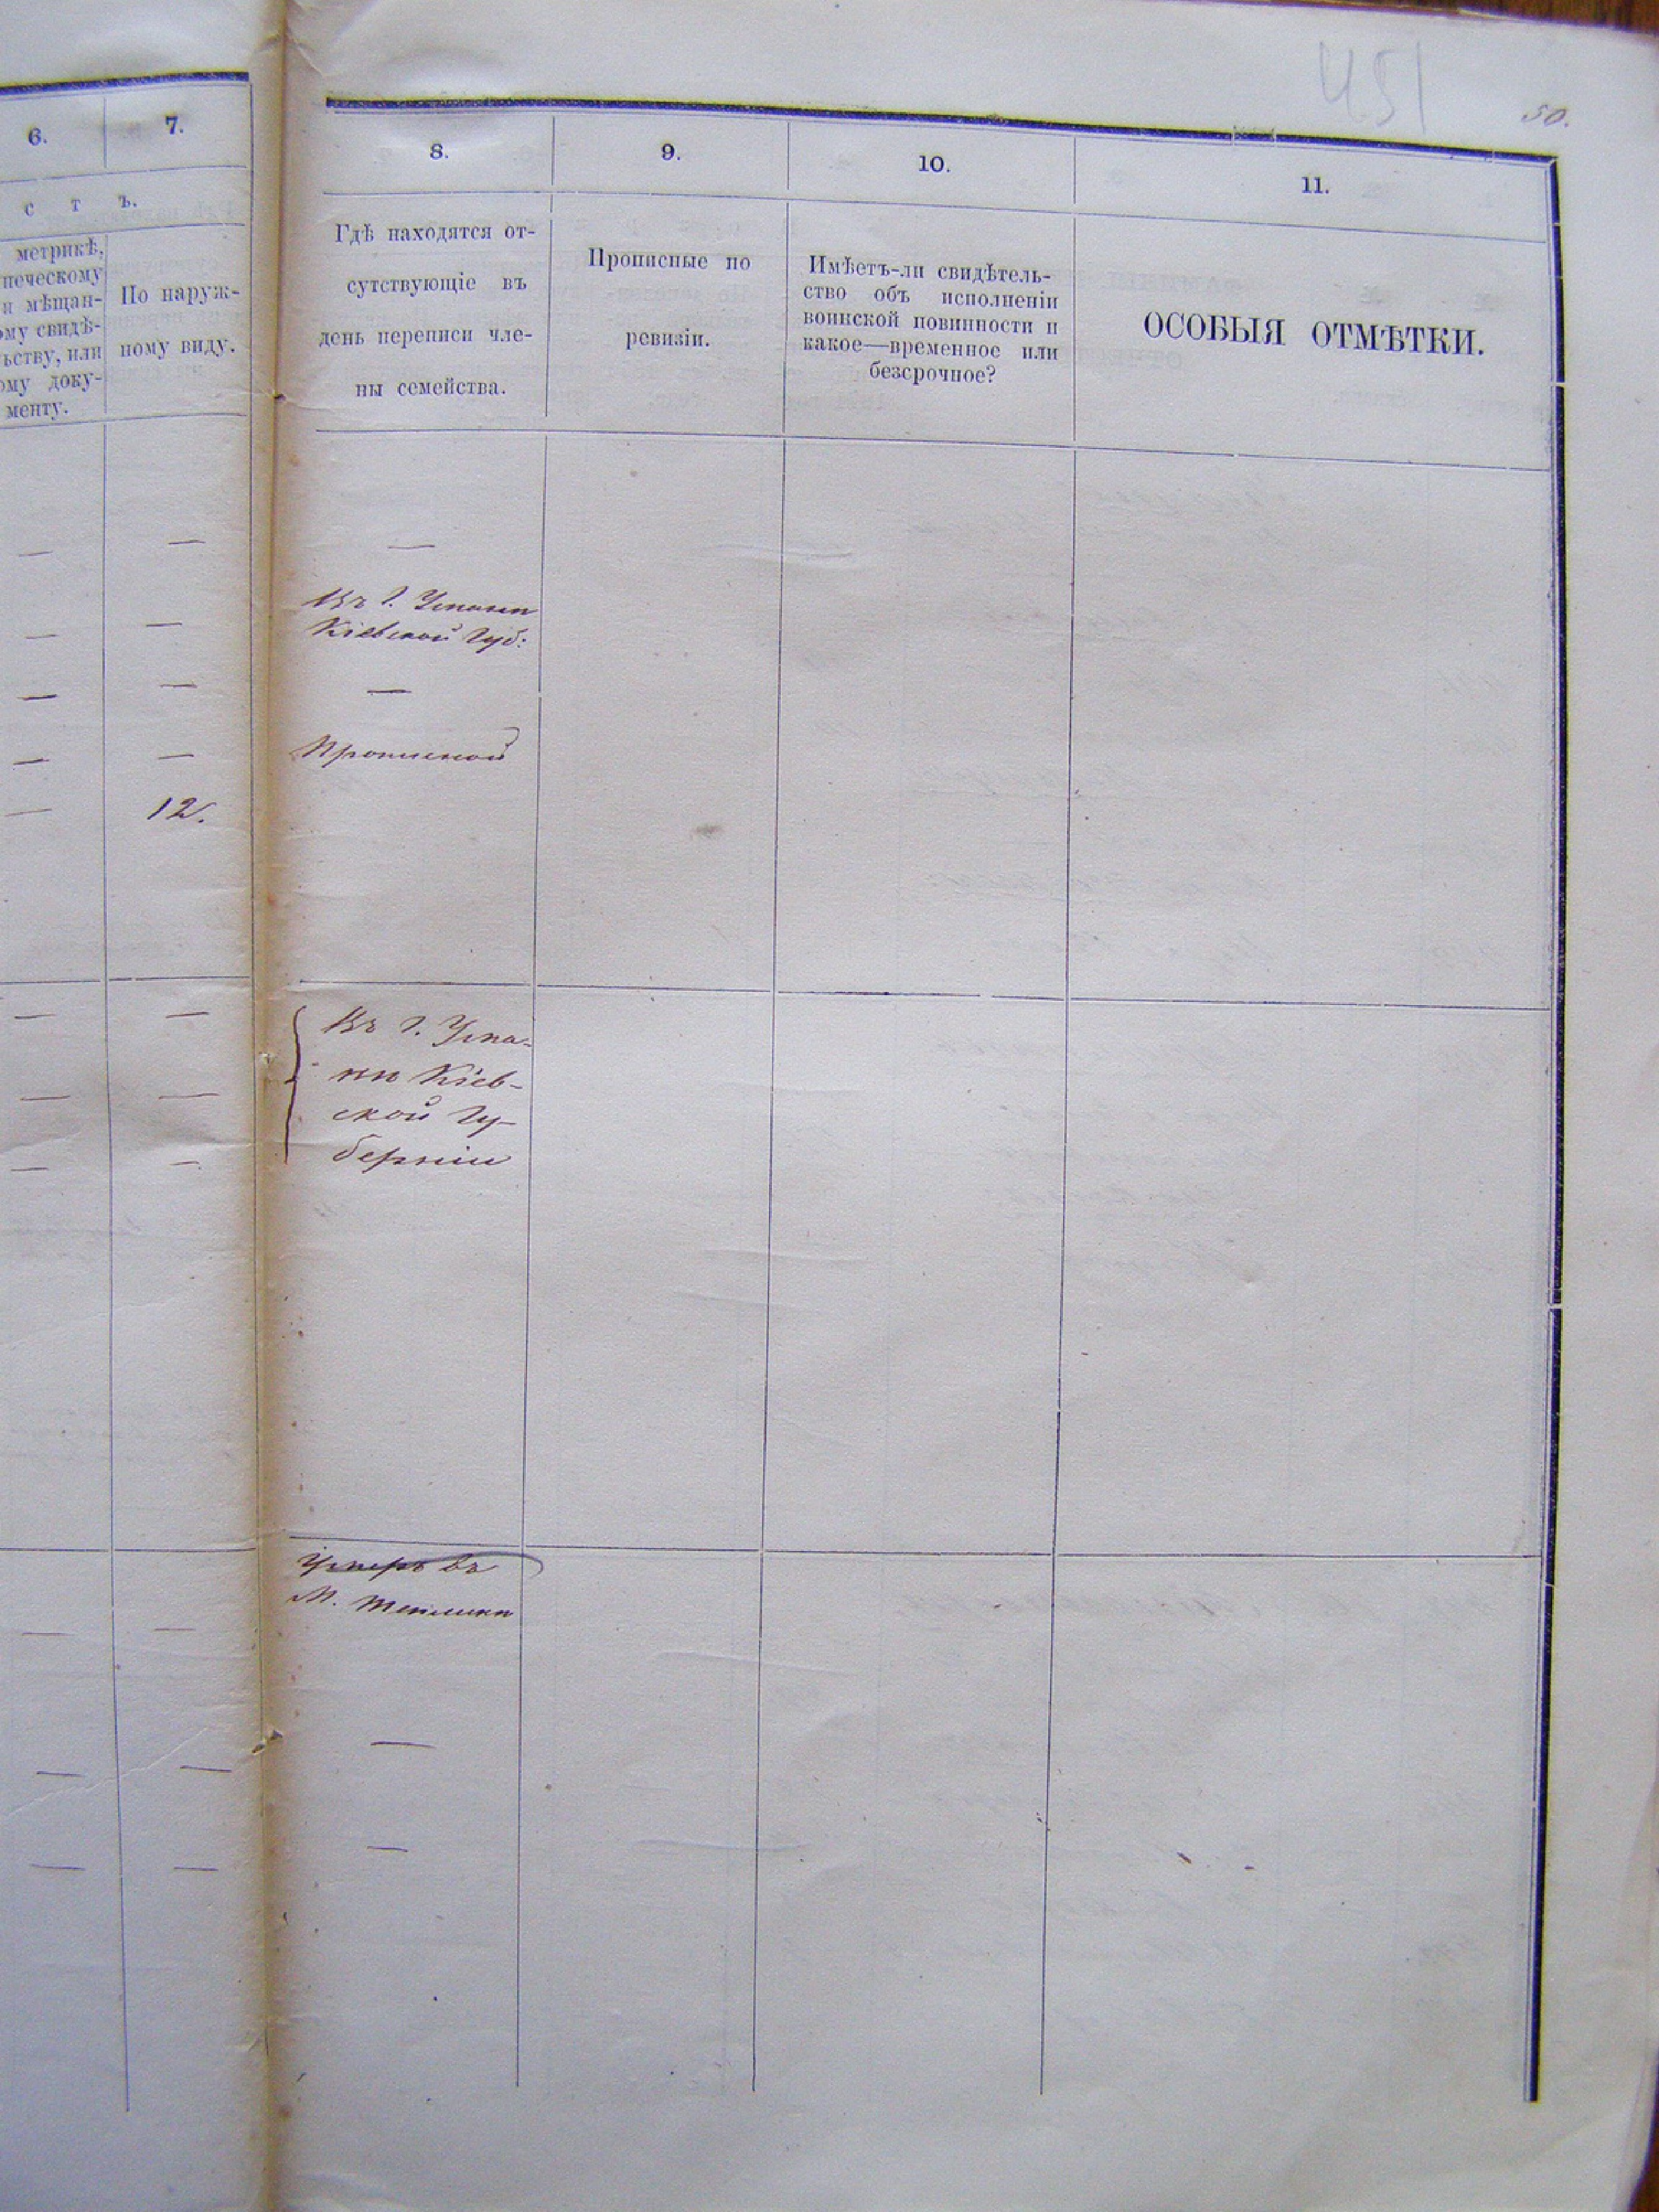 451
50.
6.
7.
8.
9.
10.
11.
с т ъ.
метрикѣ,
печескому
и мѣщан-
ому свидѣ-
ьству, или
ому доку-
менту.
По наруж-
ному виду.
Гдѣ находятся от-
сутствующіе въ
день переписи чле-
ны семейства.
Прописные по
ревизіи.
Имѣетъ-ли свидѣтель-
ство объ исполненіи
воинской повинности и
какое—временное или
безсрочное?
ОСОБЫЯ ОТМѢТКИ.
— — —
— — Въ г. Умани
Кіевской Губ:
— — —
— — Прописной
— 12.
— — Въ г. Ума-
ни Кіев-
— — ской Гу-
— — берніи
Умеръ въ
М. Теплики
— —
— — —
— — —